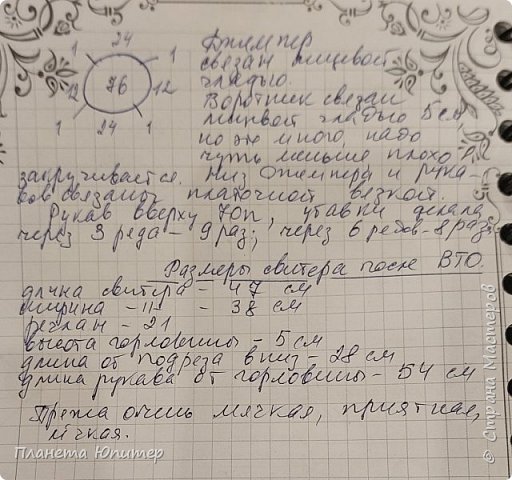 24
1 1
12 76 12
1 24 1
Джемпер
связан лицевой
гладью.
Воротник связан
лицевой гладью 5 см,
но это много, надо
чуть меньше плохо
закручивается. Низ джемпера и рука-
вов связаны платочной вязкой.
Рукав вверху 70п, убавки делала
через 3 ряда - 9 раз; через 6 рядов - 8 раз
Размеры свитера после ВТО.
длина свитера - 47 см
ширина -"- - 38 см
реглан - 21
высота горловины - 5 см
длина от подреза вниз - 28 см
длина рукава от горловины - 54 см
Пряжа очень мягкая, приятная,
лёгкая.
Планета Юпитер
© Страна Мастеров